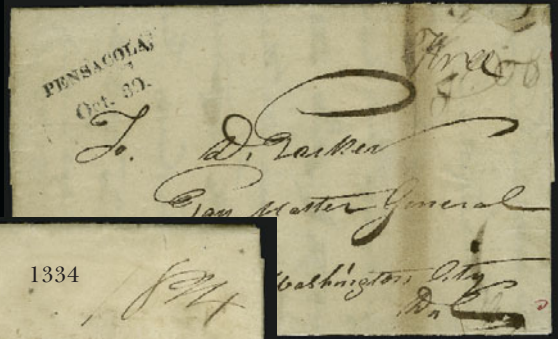 PENSACOLA,
Oct. 30.
Free
To. D. Parker
Pay Master General
Washington City
Dn
1334
1824